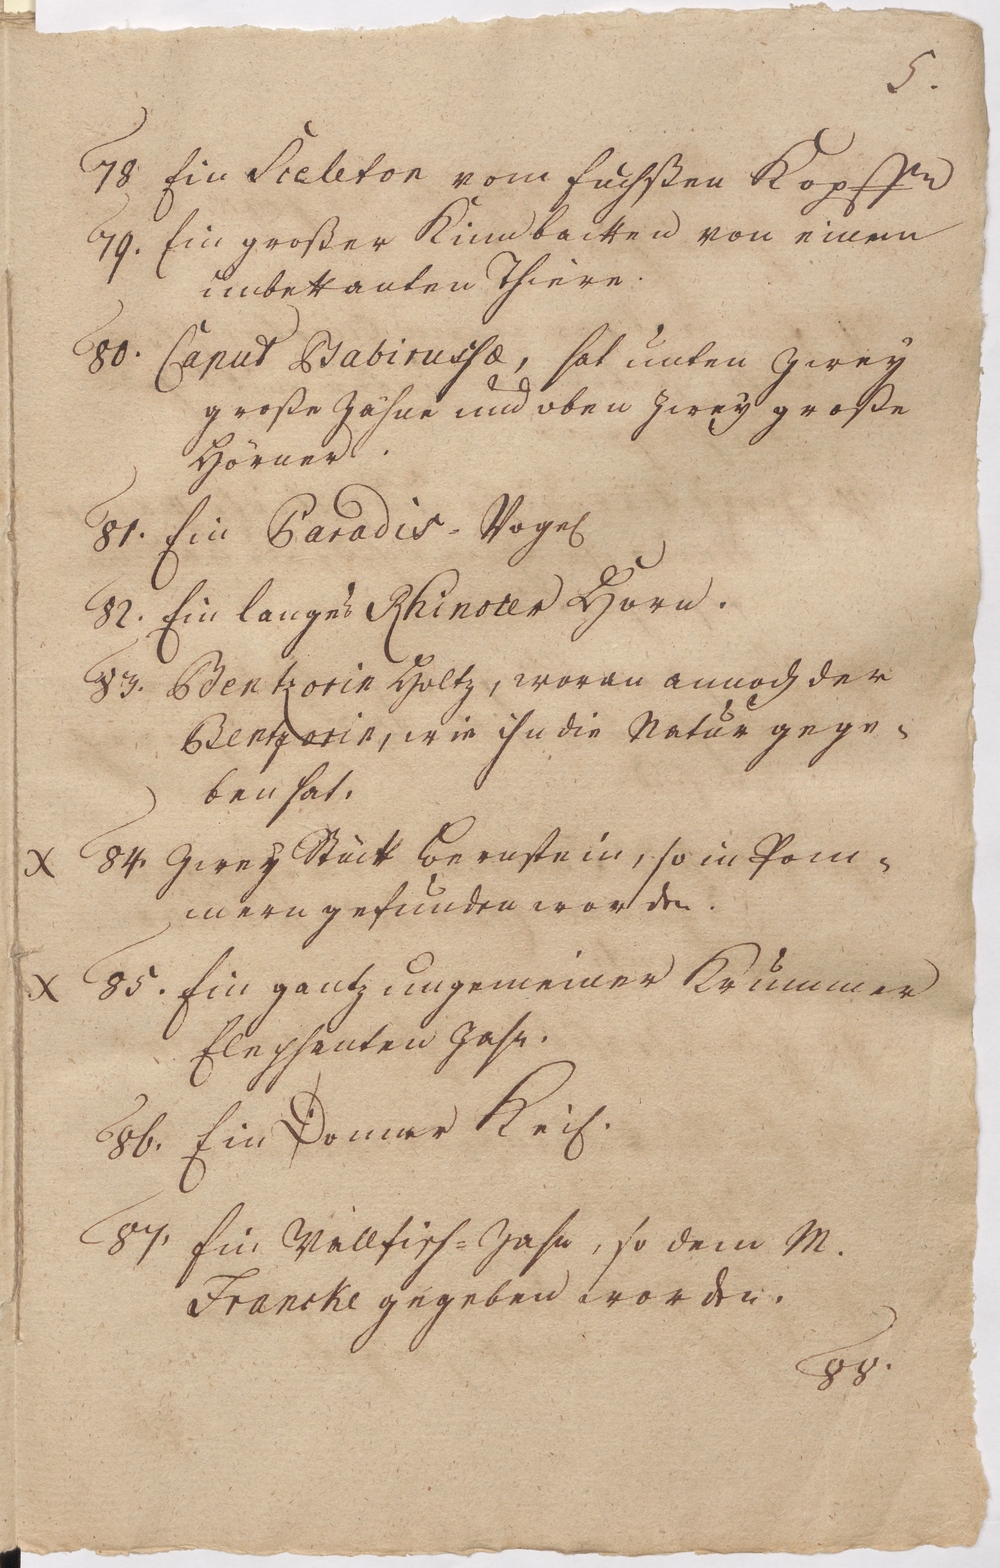 5.
78 Ein Sceleton vom fuchßen Kopffe
79. Ein großer Kinnbacken von einem
unbekanten Thiere.
80. Caput Babirussæ, hat unten zwey
große Zähne und oben zwey große
Hörner.
81. Ein Paradis-Vogel
82. Ein langes Rhinocer Horn.
83. Bentzorin Holtz, woran annoch der
Bentzorin, wie ihn die Natur gege-
ben hat.
X 84. Zwey Stück Bernstein, so in Pom-
mern gefunden worden.
X 85. Ein gantz ungemeiner Krummer
Elephanten Zahn.
86. Ein Donner Keil.
87. Ein Wallfisch-Zahn, so dem M.
Francke gegeben worden.
88.